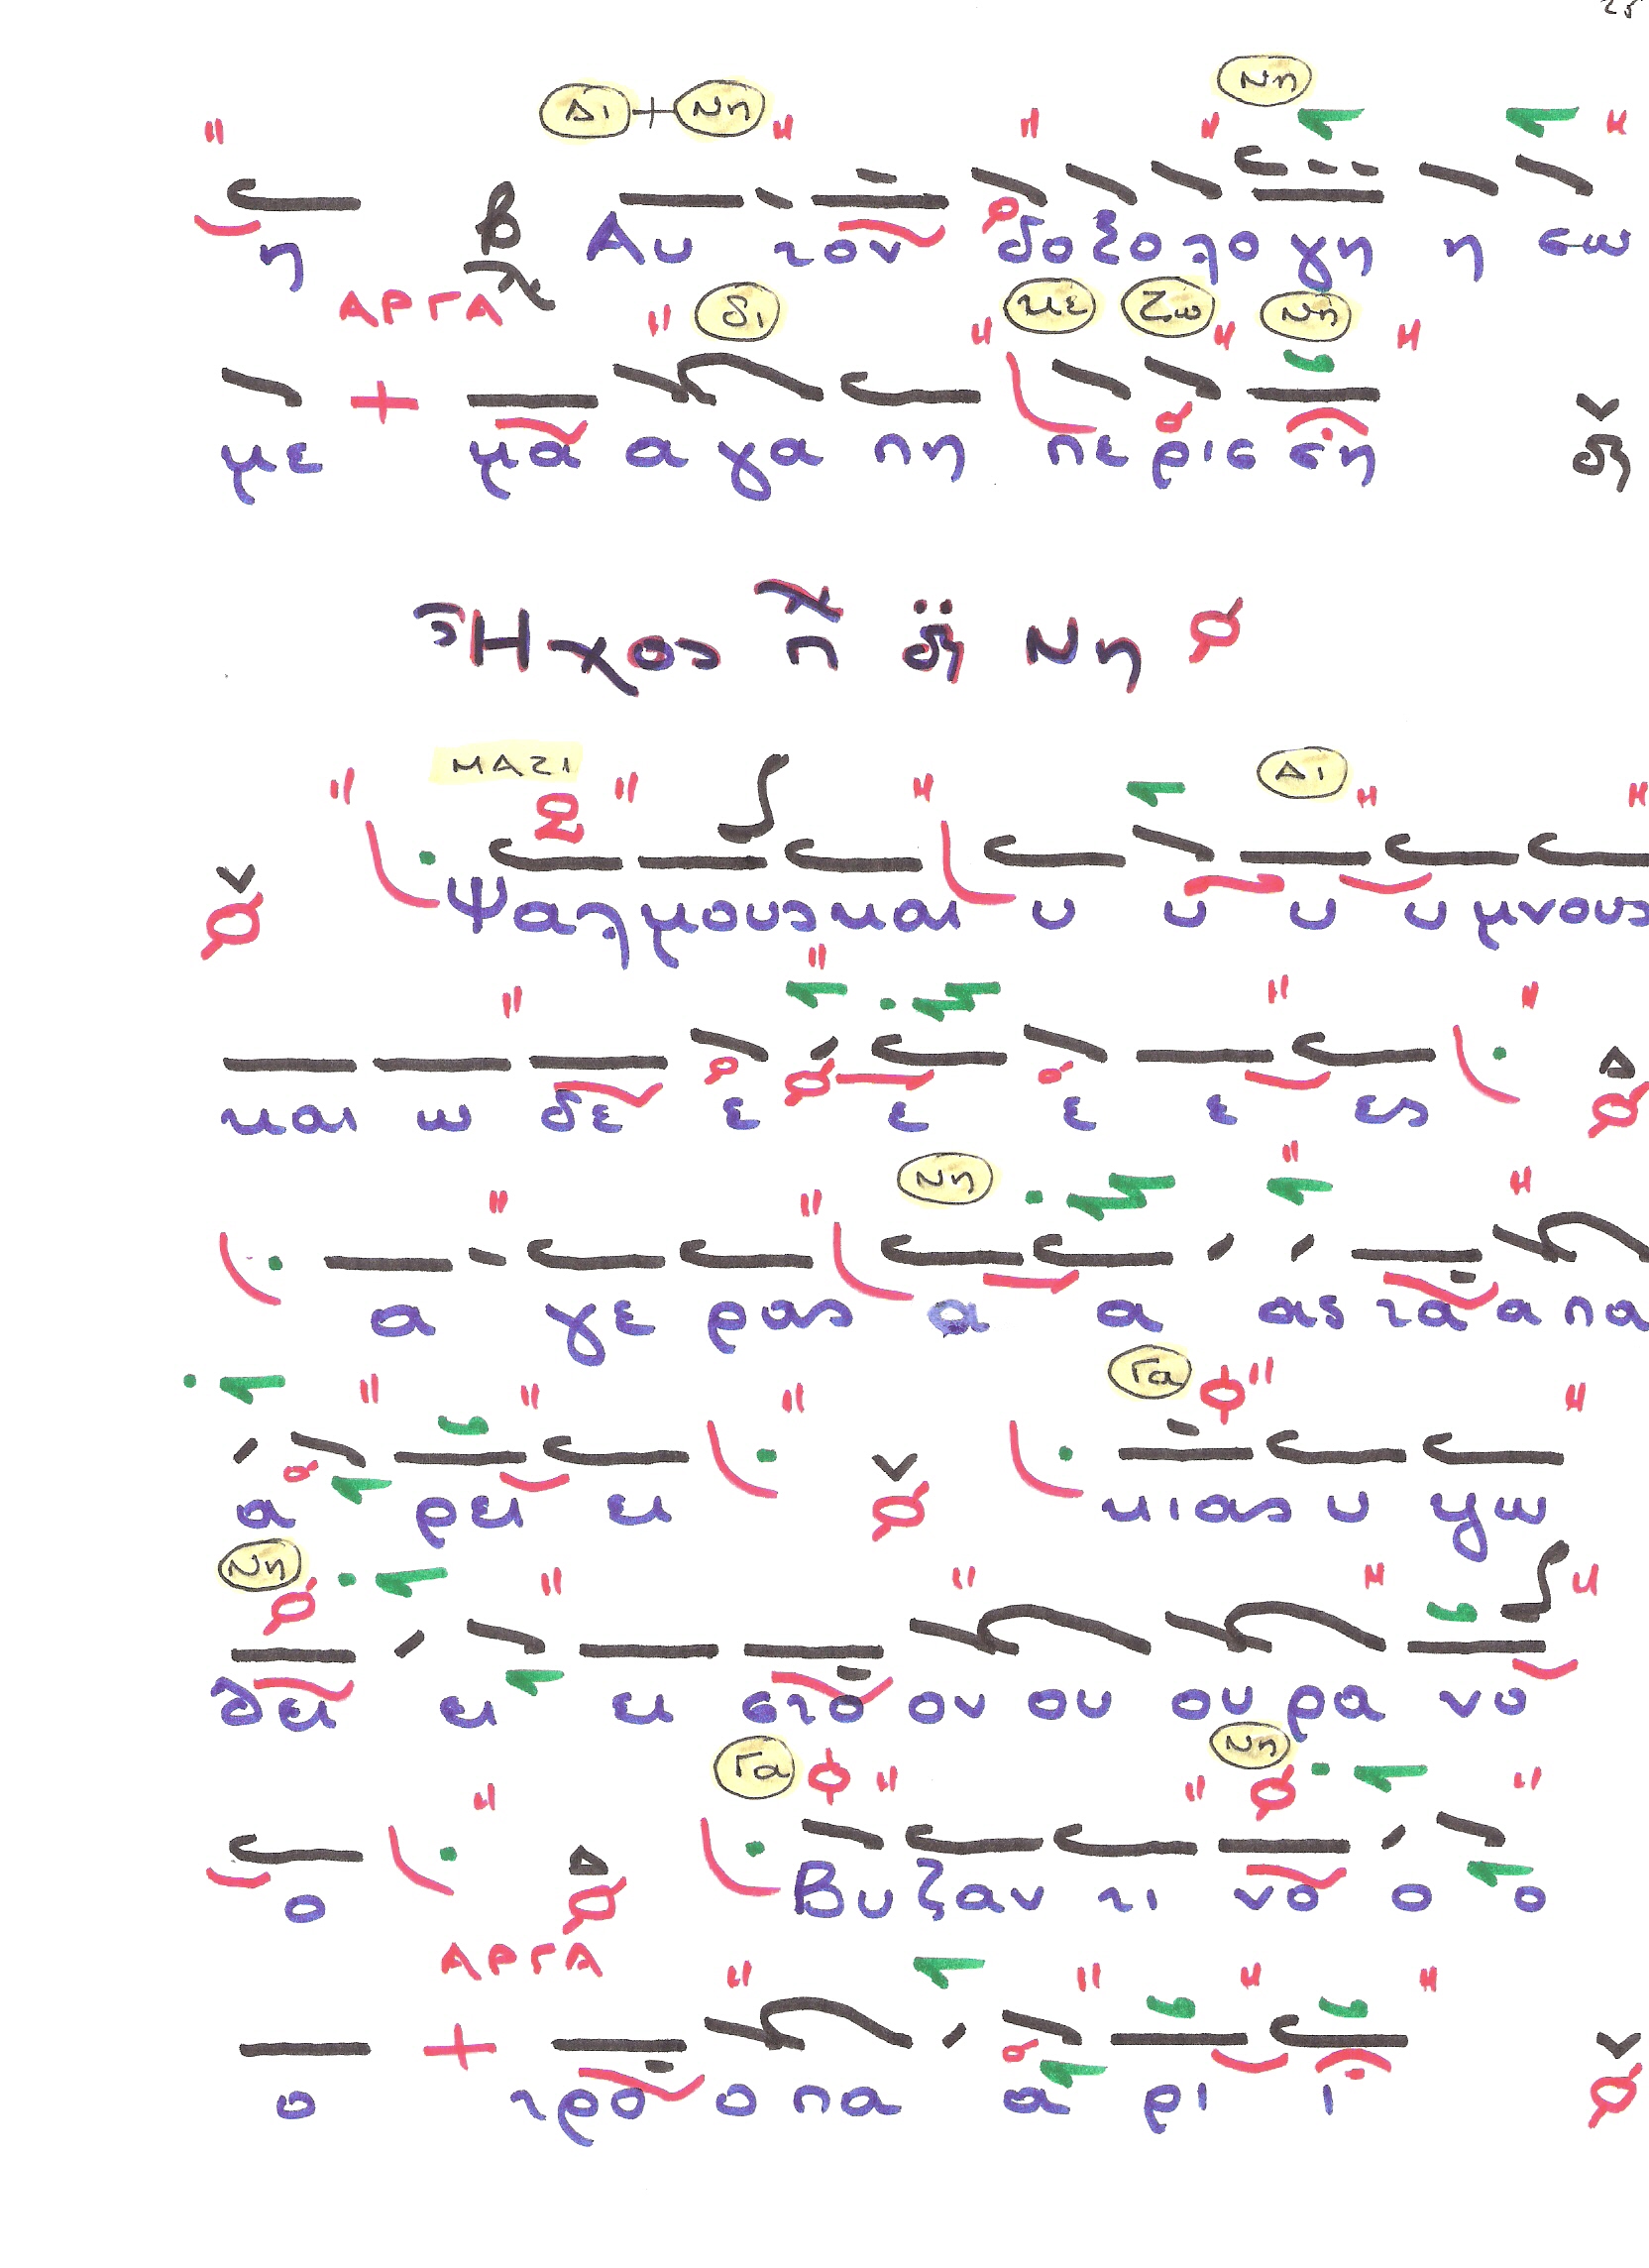 25
Δι + Νη Νη
η β Αυ τον δοξολογη η σω
ΑΡΓΑ δι κε Ζω Νη
με μα α γα πη περισ ση
Ἦχος π δι Νη
ΜΑΖΙ Δι
Ψαλμους και υ υ υ υμνους
και ω δε ε ε ε ε ες
Νη
α γε ρας α α ας τα α πα
Γα
α ρει ει κιας υ ψω
Νη
θει ει ει στο ον ου ου ρα νο
Γα Νη
ο Βυζαν τι νο ο ο
ΑΡΓΑ
ο τρο ο πα α ρι ι